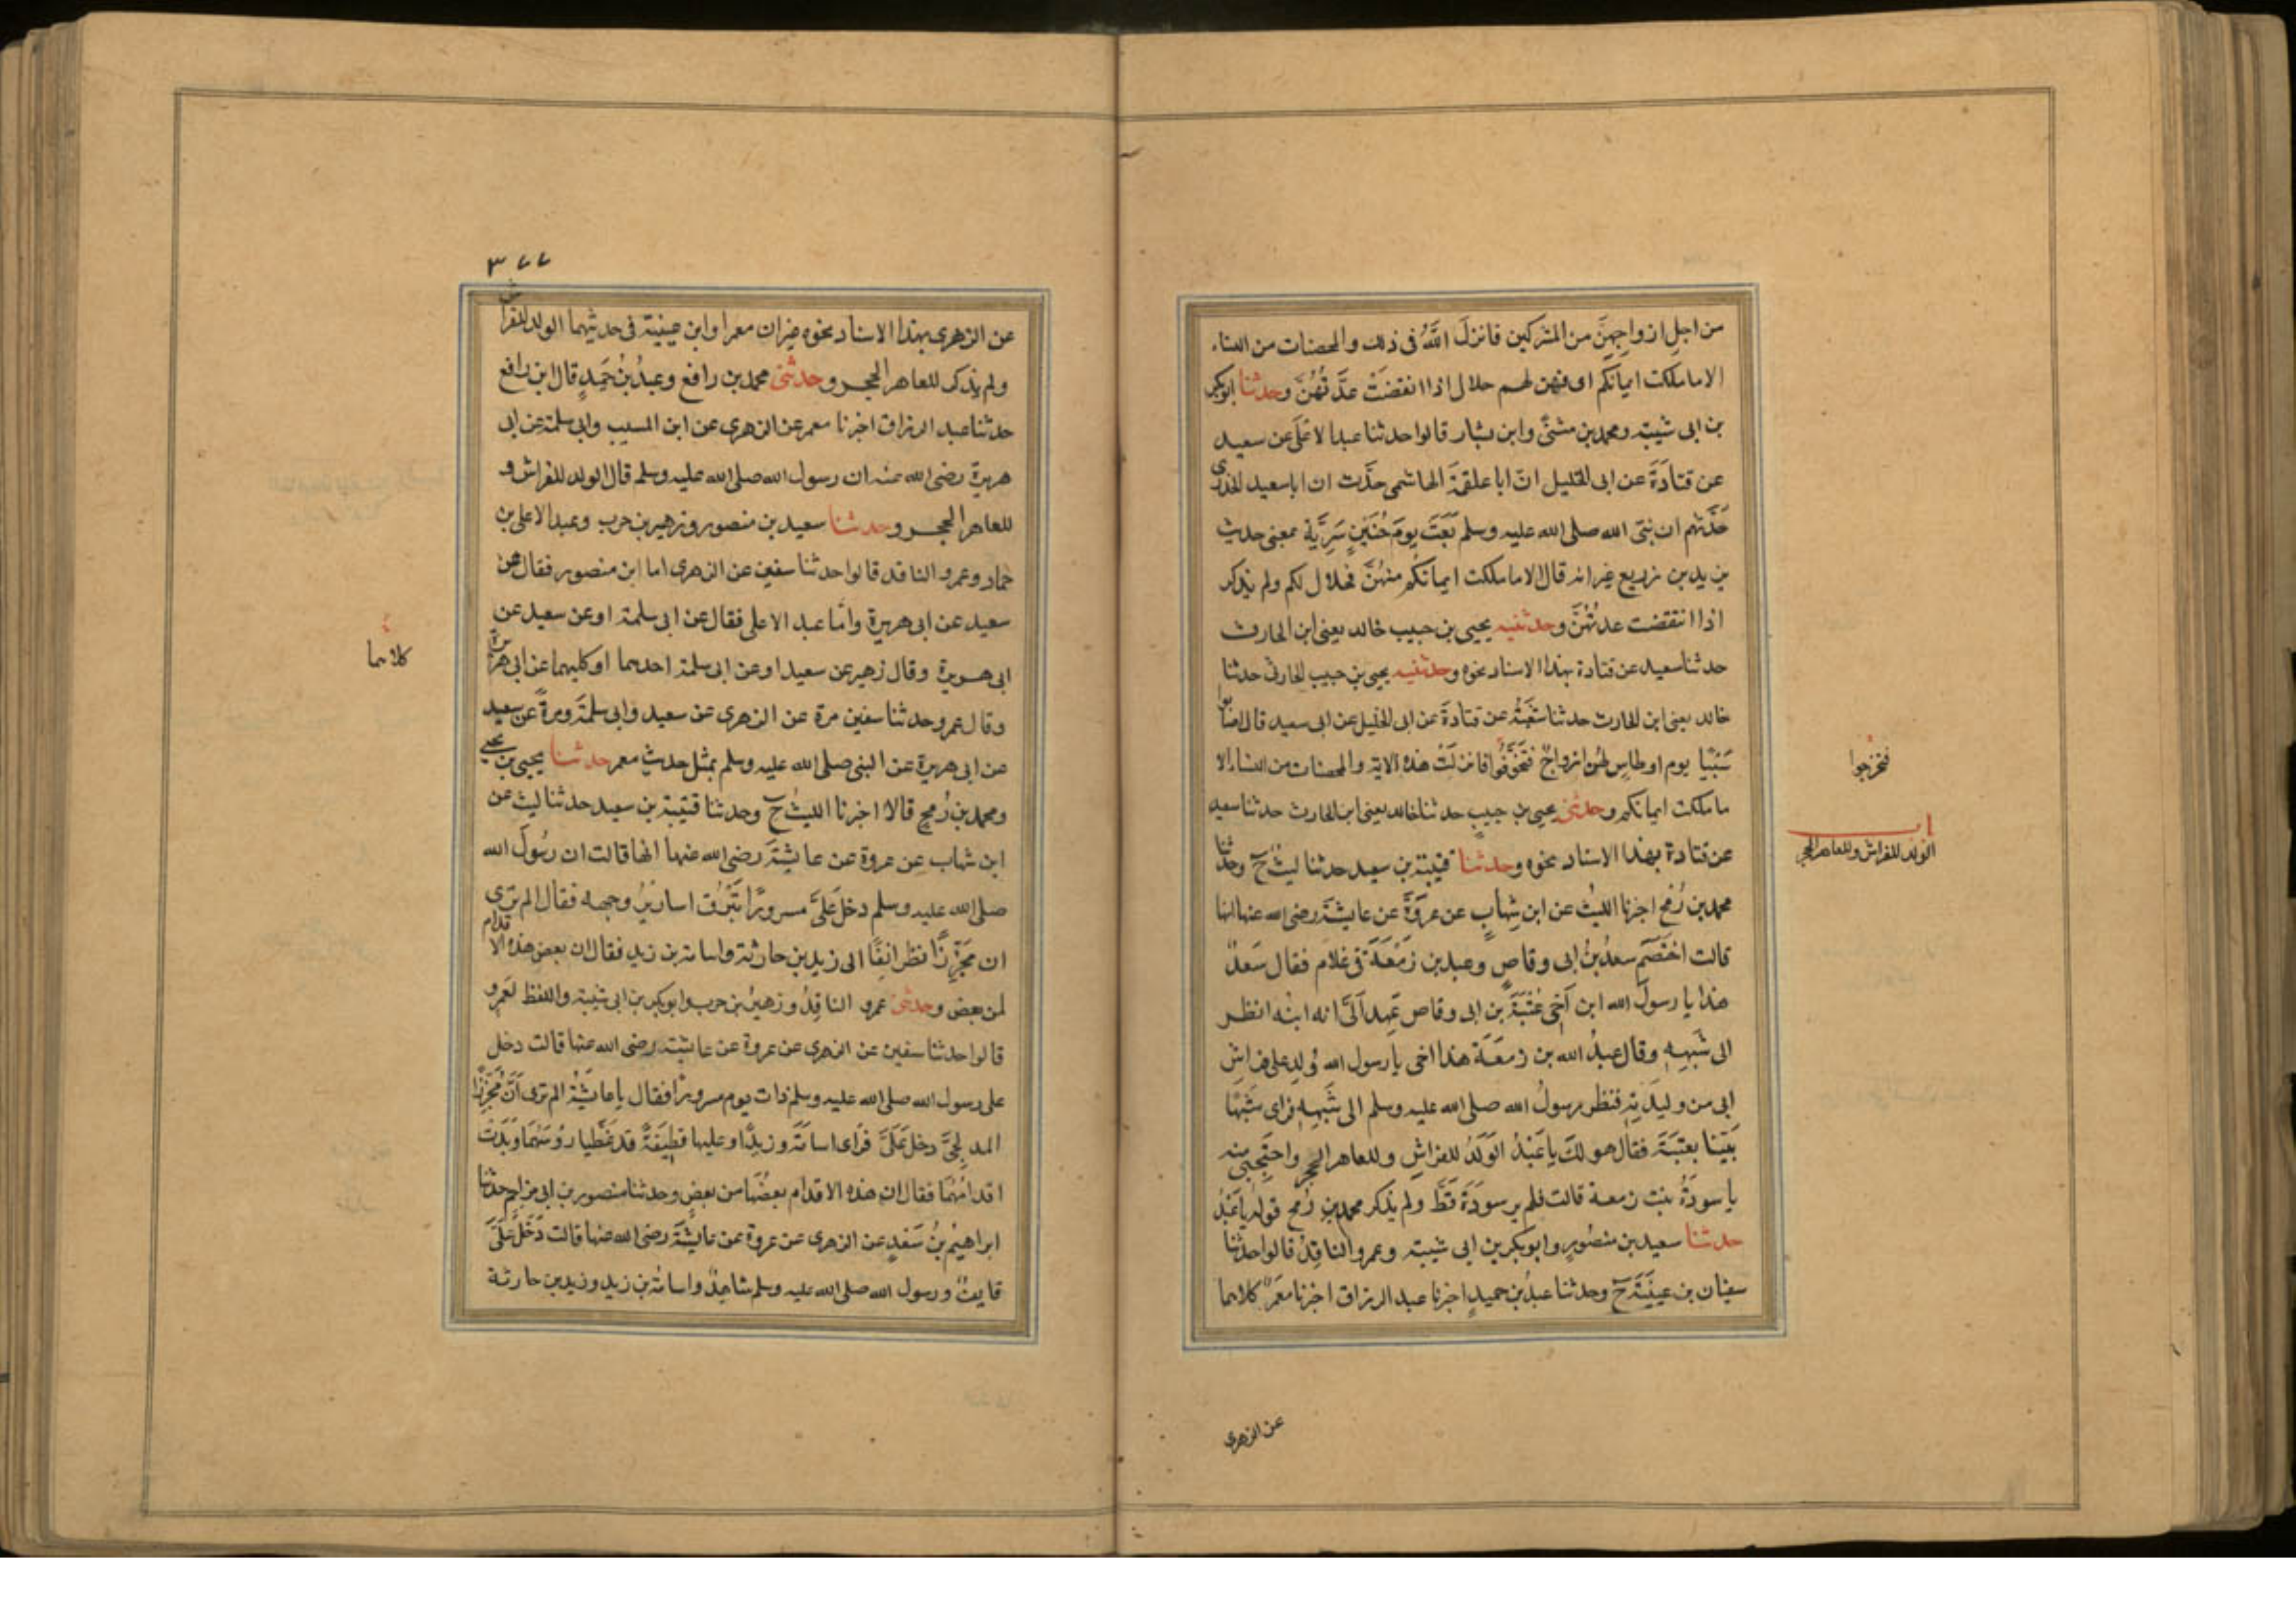 من اجل ازواجهنَّ من المشركين فانزلَ اللَّهُ فى ذلك والمحصنات من النساء
الا ما ملكت ايمانكم اى فهن لهم حلال اذا انقضَتْ عدَّتُهُنَّ وحدثنا ابوبكر
بن ابى شيبة ومحمد بن مثنىَّ وابن بشار قالوا حدثنا عبد الاعلَى عن سعيد
عن قتادَةَ عن ابى الخليل انّ ابا علقمَةَ الهاشمى حدَّث ان ابا سعيد الخدرى
حَدَّثهم ان نبىّ الله صلى الله عليه وسلم بَعَثَ يومَ حُنَيْنٍ سَرِيَّة بمعنى حديث
يزيد بن زريع غير انه قال الا ما ملكت ايمانكُم منهُنَّ فحلال لكم ولم يذكر
اذا انقضت عدتُهُنَّ وحدثنيه يحيى بن حبيب خالد يعنى ابن الحارث
حدثنا سعيد عن قتادة بهذا الاسناد نحوه وحدثنيه يحيى بن حبيب الحارثى حدثنا
خالد يعنى ابن الحارث حدثنا شعْبَةُ عن قتادَةَ عن ابى الخليل عن ابى سعيد قال اصابوا
سَبْيًا يوم اوطاس لهُن ازواجٌ فتخَوَّفُوا فانزلَتْ هذه الاية والمحصنات من النساء الا
ما ملكت ايمانكم وحدثنى يحيى بن حبيبٍ حدثنا خالد يعنى ابن الحارث حدثنا سعيد
عن قتادة بهذا الاسناد نحوه وحدثنا قتيبة بن سعيد حدثنا ليثٌ ح وحدثنا
محمد بن رُمح اخبرنا الليثُ عن ابن شِهابٍ عن عروَةَ عن عايشَةَ رضى الله عنها انها
قالت اخْتَصَم سعدُ بنُ ابى وقاصٍ وعبد بن زَمْعَةَ فى غلام فقال سَعدٌ
هذا يا رسولَ الله ابن اخِى عُتْبَةَ بن ابى وقاص عَهِدَ اَلَىَّ انه ابنُه انظر
الى شَبَهِه وقال عبدُ الله بن زمعَة هذا اخى يا رسول الله وُلِد على فراش
ابى من وليدَتِه فنظر رسولُ الله صلى الله عليه وسلم الى شَبَهِه فراى شَبَهًا
بَيّنًا بعتبَةَ فقال هو لكَ يا عَبْدُ الوَلَدُ للفراشِ وللعاهر الحجر واحتجِبى منه
يا سودَةُ بنت زمعة قالت فلم ير سودَةَ قَطُّ ولم يذكر محمد بن رُمح قوله يا عَبْدُ
حدثنا سعيد بن منصُورٍ وابوبكر بن ابى شيبة وعمرو الناقِدُ قالوا حدثنا
سفيان بن عيينَةَ ح وحدثنا عبدُ بن حميدٍ اخبرنا عبد الرزاق اخبرنا معمَرٌ كلاهما
فتحرّجوا
الولد للفراش وللعاهر الحجر
عن الزهرى
٣٧٧
عن الزهرى بهذا الاسناد نحوه غير ان معمرا وابن عيينة فى حديثهما الولد للفراش
ولم يذكر للعاهر الحجر وحدثنى محمد بن رافع وعبدُ بْنُ حُمَيدٍ قال ابن رافع
حدثنا عبد الرزاق اخبرنا معمر عن الزهرى عن ابن المسيب وابى سلمة عن ابى
هريرة رضى الله عنه ان رسول الله صلى الله عليه وسلم قال الولد للفراش و
للعاهر الحجر وحدثنا سعيد بن منصور وزهير بن حرب وعبد الاعلى بن
حماد وعمرو الناقد قالوا حدثنا سفين عن الزهرى اما ابن منصور فقال عن
سعيد عن ابى هريرة وامّا عبد الاعلى فقال عن ابى سلمة او عن سعيد عن
ابى هريرة وقال زهير عن سعيد او عن ابى سلمة احدهما او كليهما عن ابى هريرة
وقال عمرو حدثنا سفين مرة عن الزهرى عن سعيد وابى سلمَةَ ومرةً عن سعيد
عن ابى هريرة عن النبى صلى الله عليه وسلم بمثل حديث معمر حدثنا يحيى بن يحيى
ومحمد بن رُمحٍ قالا اخبرنا الليث ح وحدثنا قتيبة بن سعيد حدثنا ليث عن
ابن شهاب عن عروة عن عايشَةَ رضى الله عنها انها قالت ان رسُولَ الله
صلى الله عليه وسلم دخل عَلَىَّ مسرورًا تَبْرُق اساريرُ وجهه فقال الم ترى
ان مُجَزِّزًا نظر انِفًا الى زيد بن حارثة واسامة بن زيد فقال ان بعض هذه الاقدام
لمن بعض وحدثنى عمرو الناقِدُ وزهيرُ بن حرب وابوبكر بن ابى شيبة واللفظ لعمرو
قالوا حدثنا سفين عن الزهرى عن عروة عن عايشة رضى الله عنها قالت دخل
على رسول الله صلى الله عليه وسلم ذات يوم مسرورًا فقال يا عايشَةُ الم ترى اَنَّ مُجَزِّزًا
المدلِجىَّ دخل عَلَىَّ فرَاى اسامَةَ وزيدًا وعليها قطِيفَةٌ قد غَطَّيا رؤسَهُمَا وَبَدَتْ
اقدامُهُمَا فقال ان هذه الاقدام بعضُهَا من بعضٍ وحدثنا منصور بن ابى مزاحم حدثنا
ابراهيمُ بنُ سَعْدٍ عن الزهرى عن عروة عن عايشَةَ رضى الله عنها قالت دَخَلَ عَلَىَّ
قايفٌ ورسول الله صلى الله عليه وسلم شاهِدٌ واسامَةُ بن زيد وزيد بن حارثة
كلاهما